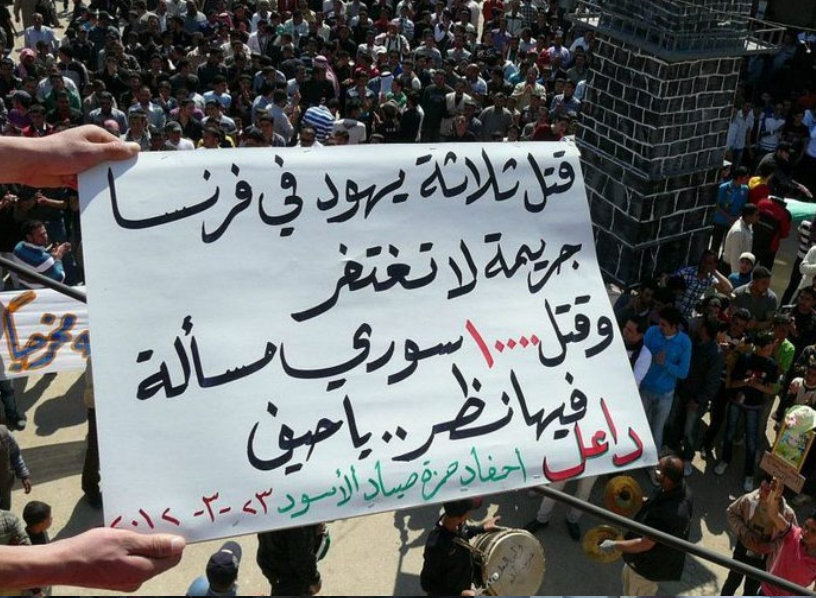 قتل ثلاثة يهود في فرنسا
جريمة لا تغتفر
وقتل ١٠٠٠٠ سوري مسألة
فيها نظر .. يا حيف
داعل احفاد حمزة صياد الأسود ٢٣-٣-٢٠١٢